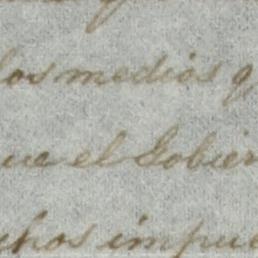 los medios q
ue el Gobier
chos impue